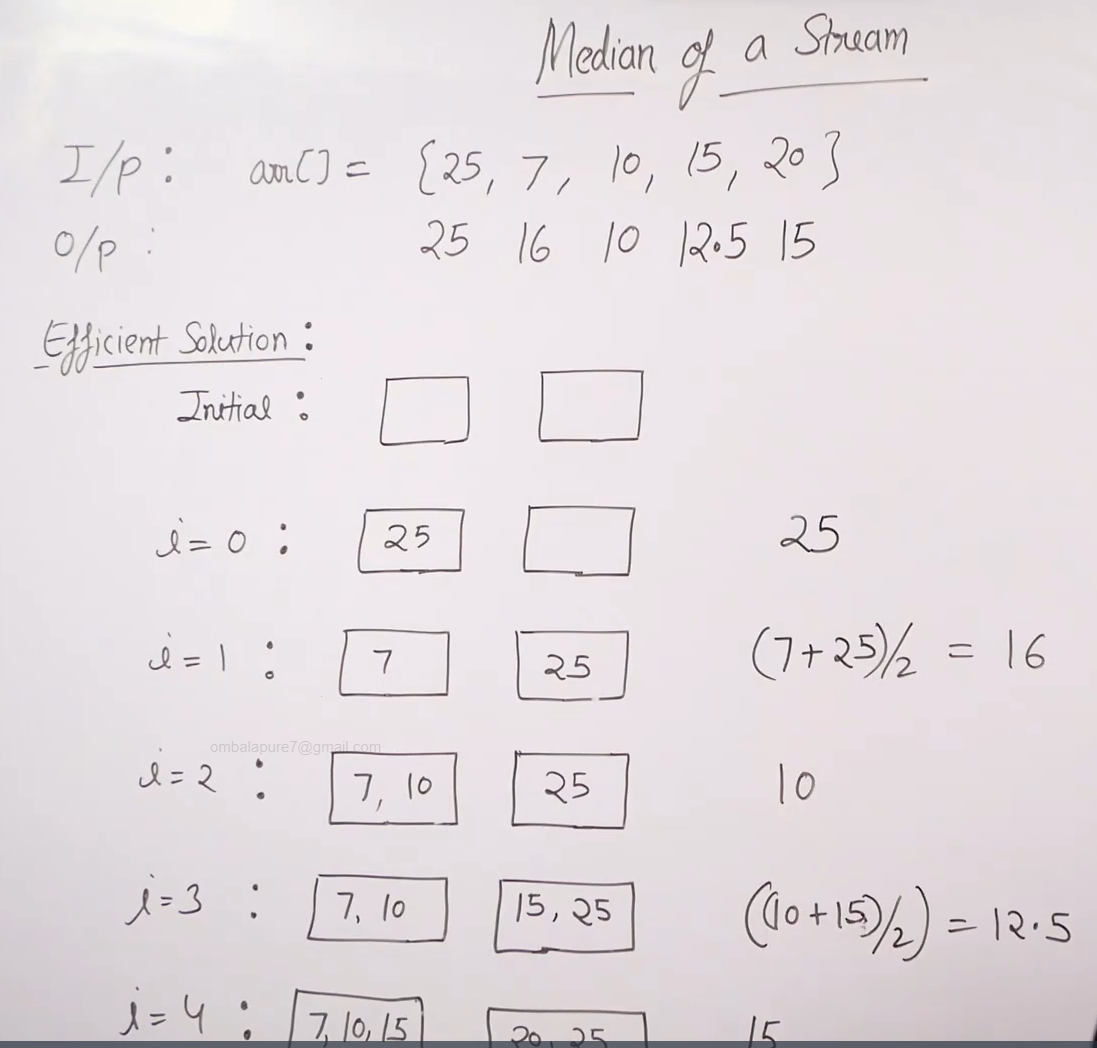 Median of a Stream
I/p : arr[] = {25, 7, 10, 15, 20}
O/p : 25 16 10 12.5 15
Efficient Solution :
Initial :
i = 0 : 25 25
i = 1 : 7 25 (7+25)/2 = 16
ombalapure7@gmail.com
i = 2 : 7, 10 25 10
i = 3 : 7, 10 15, 25 ((10+15)/2) = 12.5
i = 4 : 7, 10, 15 20, 25 15